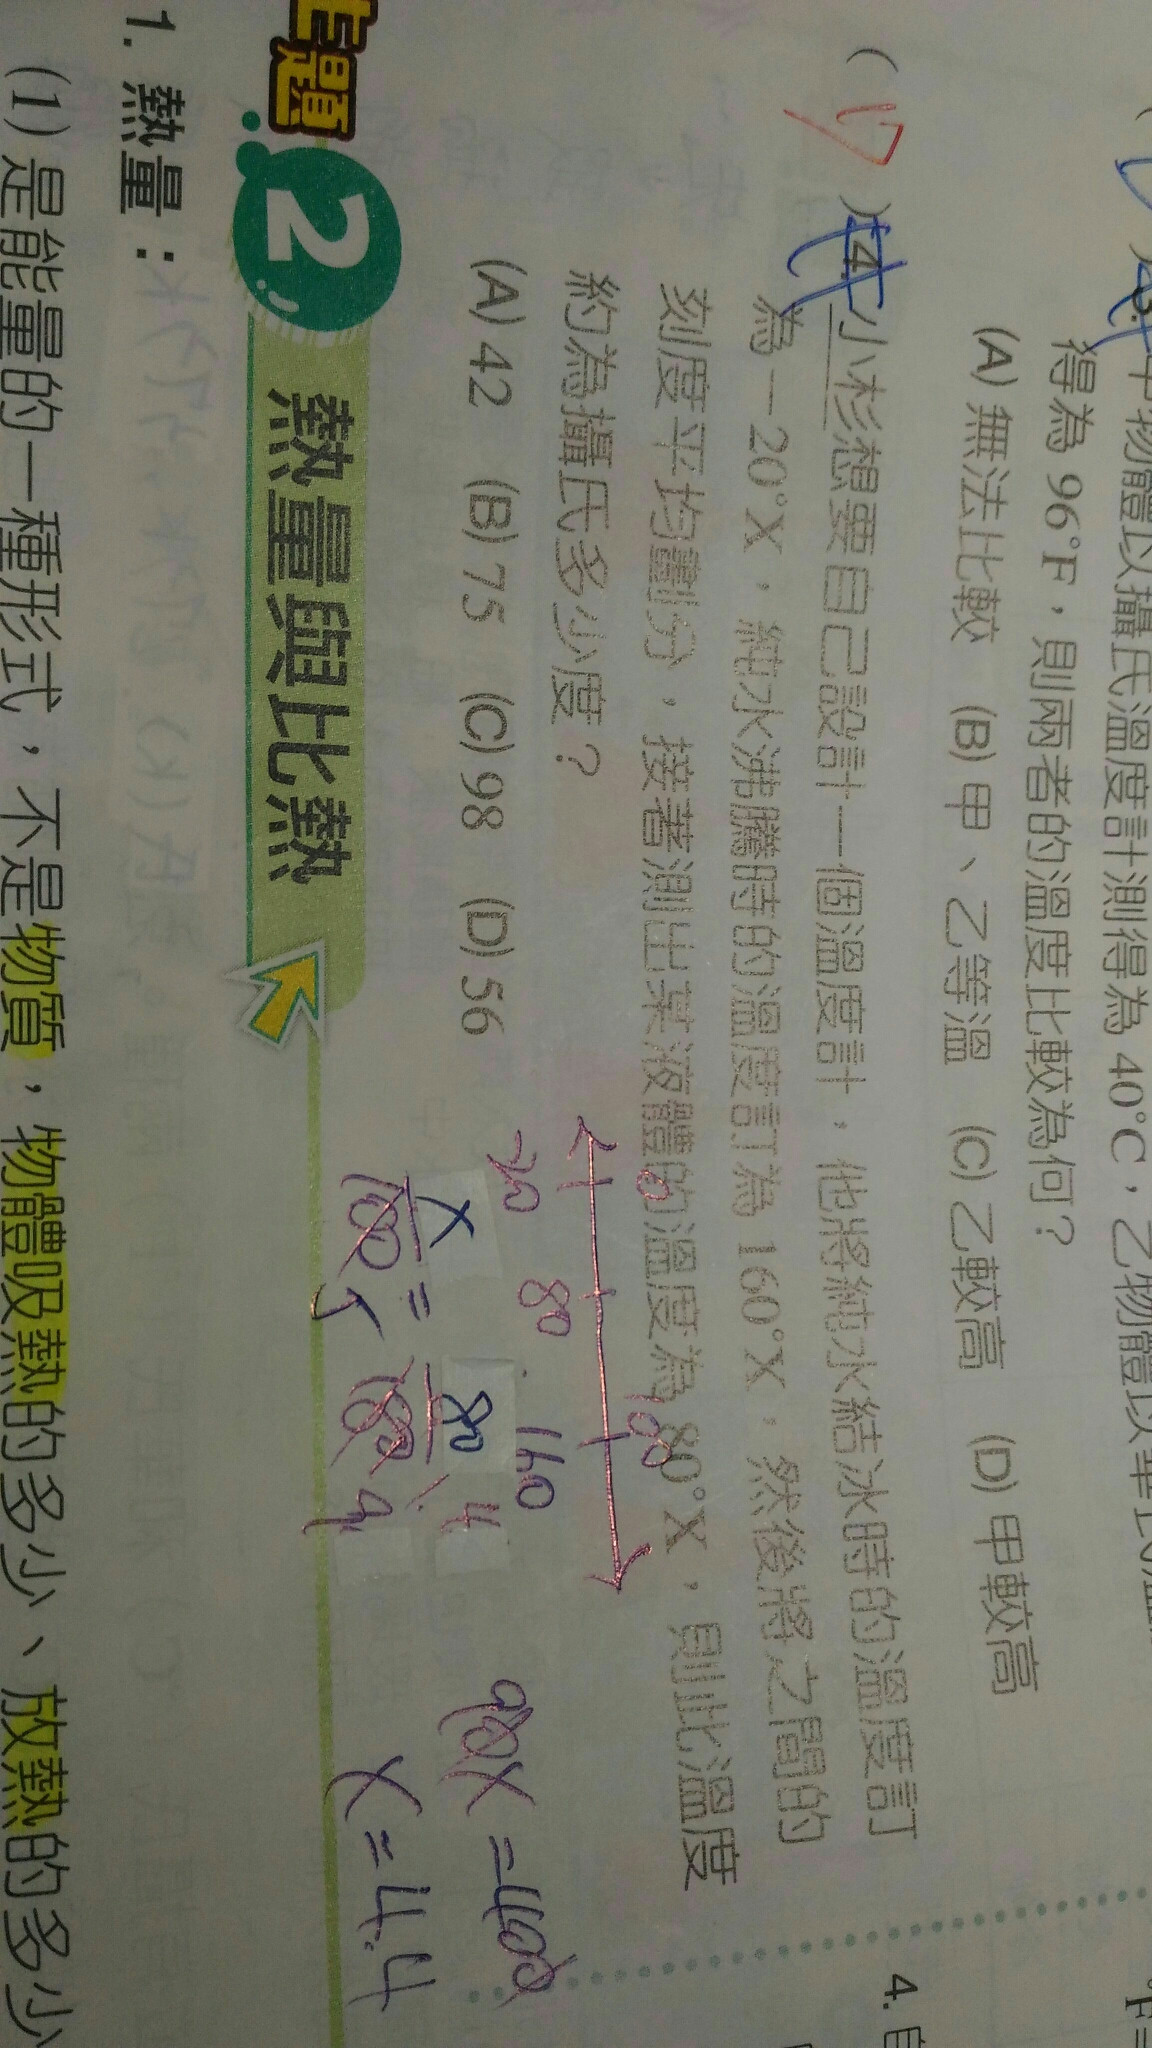 3.甲物體以攝氏溫度計測得為 40°C，乙物體以華氏溫
得為 96°F，則兩者的溫度比較為何？
(A) 無法比較 (B) 甲、乙等溫 (C) 乙較高 (D) 甲較高
( D )4.小杉想要自己設計一個溫度計，他將純水結冰時的溫度訂
為－20°X，純水沸騰時的溫度訂為 160°X，然後將之間的
刻度平均劃分，接著測出某液體的溫度為 80°X，則此溫度
約為攝氏多少度？
(A) 42 (B) 75 (C) 98 (D) 56
0 100
-20 80 160
X/100 = 80/180
5 4 9
X = 4.4
主題 2 熱量與比熱
1. 熱量：
(1) 是能量的一種形式，不是物質，物體吸熱的多少、放熱的多少
4.